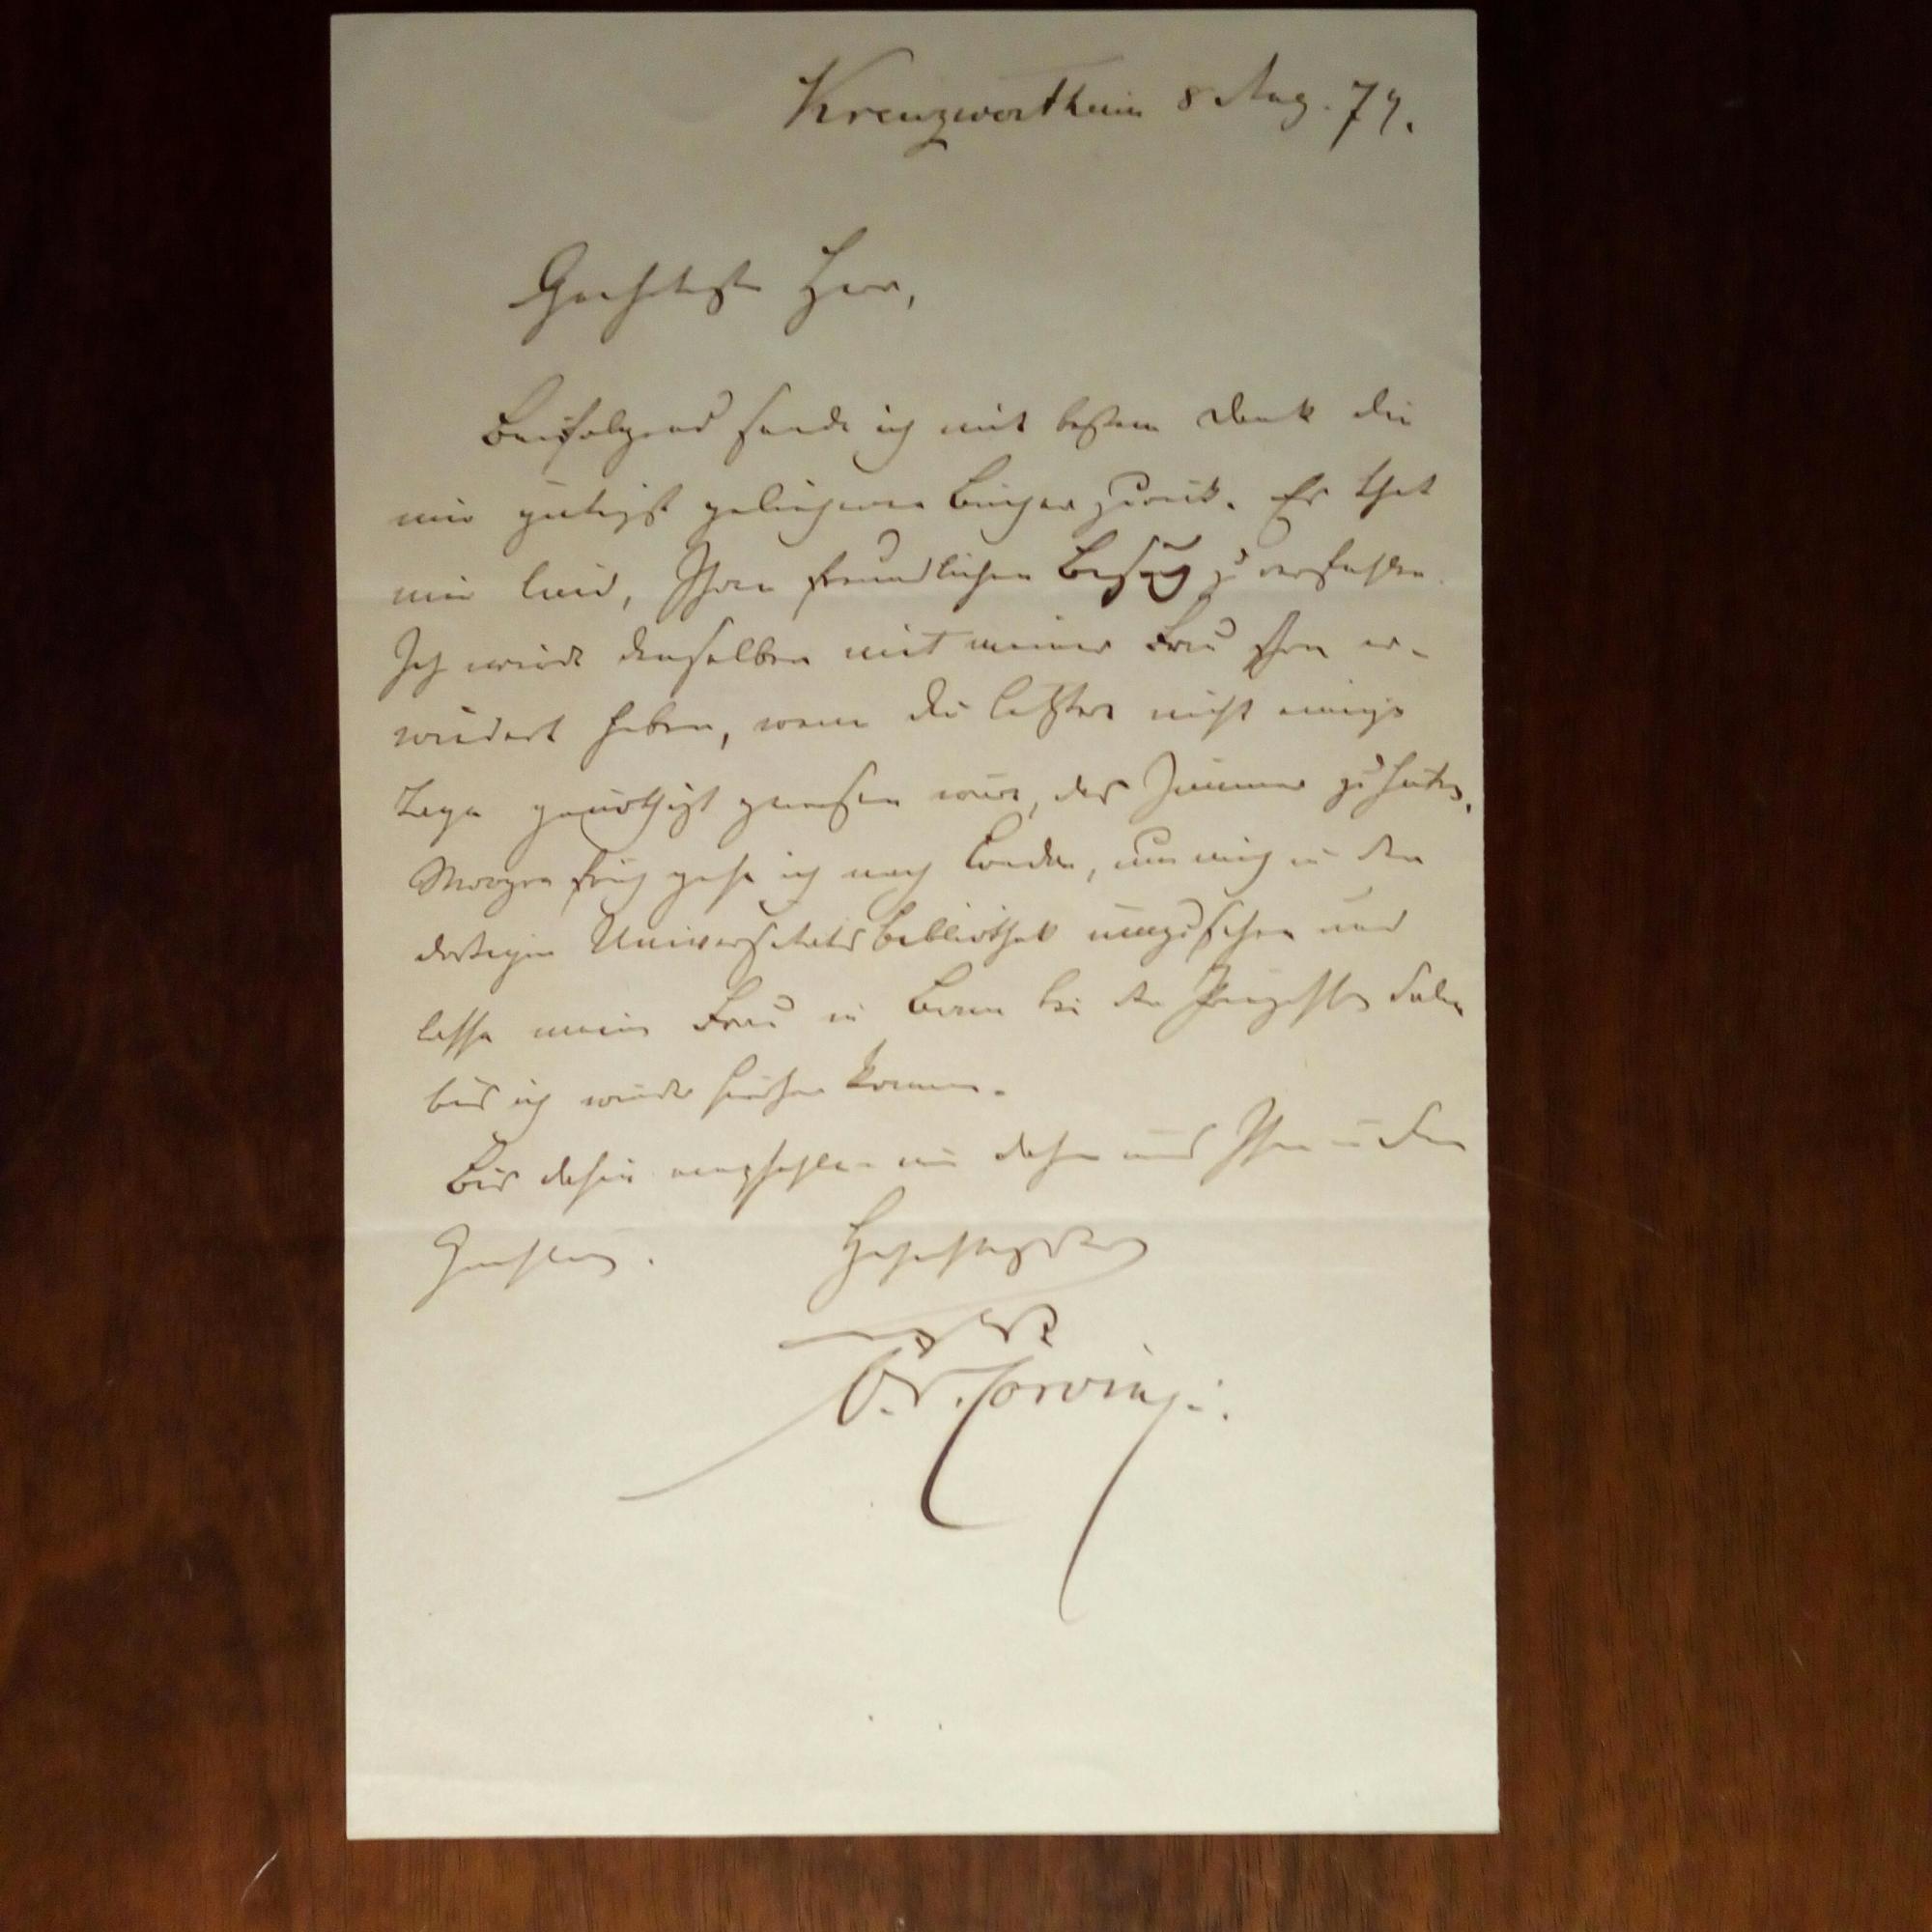 Kreuzwertheim 8 Aug. 79.
Geehrtester Herr,
Beifolgend sende ich mit bestem Dank die
mir gütigst geliehenen Bücher zurück. Es that
mir leid, Ihren freundlichen Besuch zu verfehlen.
Ich würde denselben mit meiner Frau schon er-
wiedert haben, wenn die letztere nicht einige
Tage genöthigt gewesen wäre, das Zimmer zu hüten.
Morgen früh gehe ich nach, um mich in der
dortigen Universitätsbibliothek umzusehen und
lasse meine Frau in bei der
bis ich wieder hierher komme.
Bis dahin empfehlen wir und Ihnen
Hochachtungsvoll
Corvin